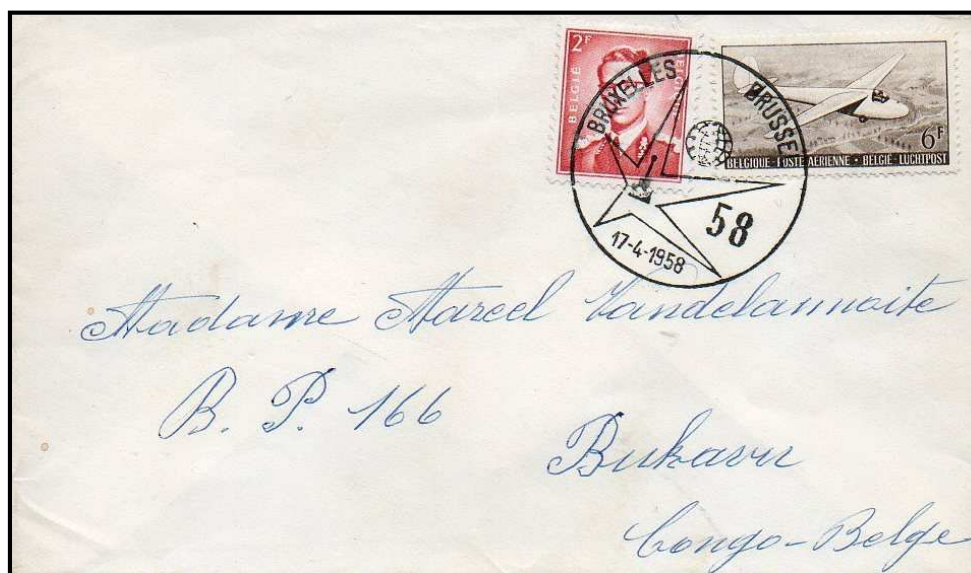 2F
BELGIË
BELGI
BRUXELLES
BRUSSEL
6F
BELGIQUE · POSTE AÉRIENNE · BELGIË · LUCHTPOST
58
17-4-1958
Madame Marcel Vandelannoite
B. P. 166
Bukavu
Congo-Belge